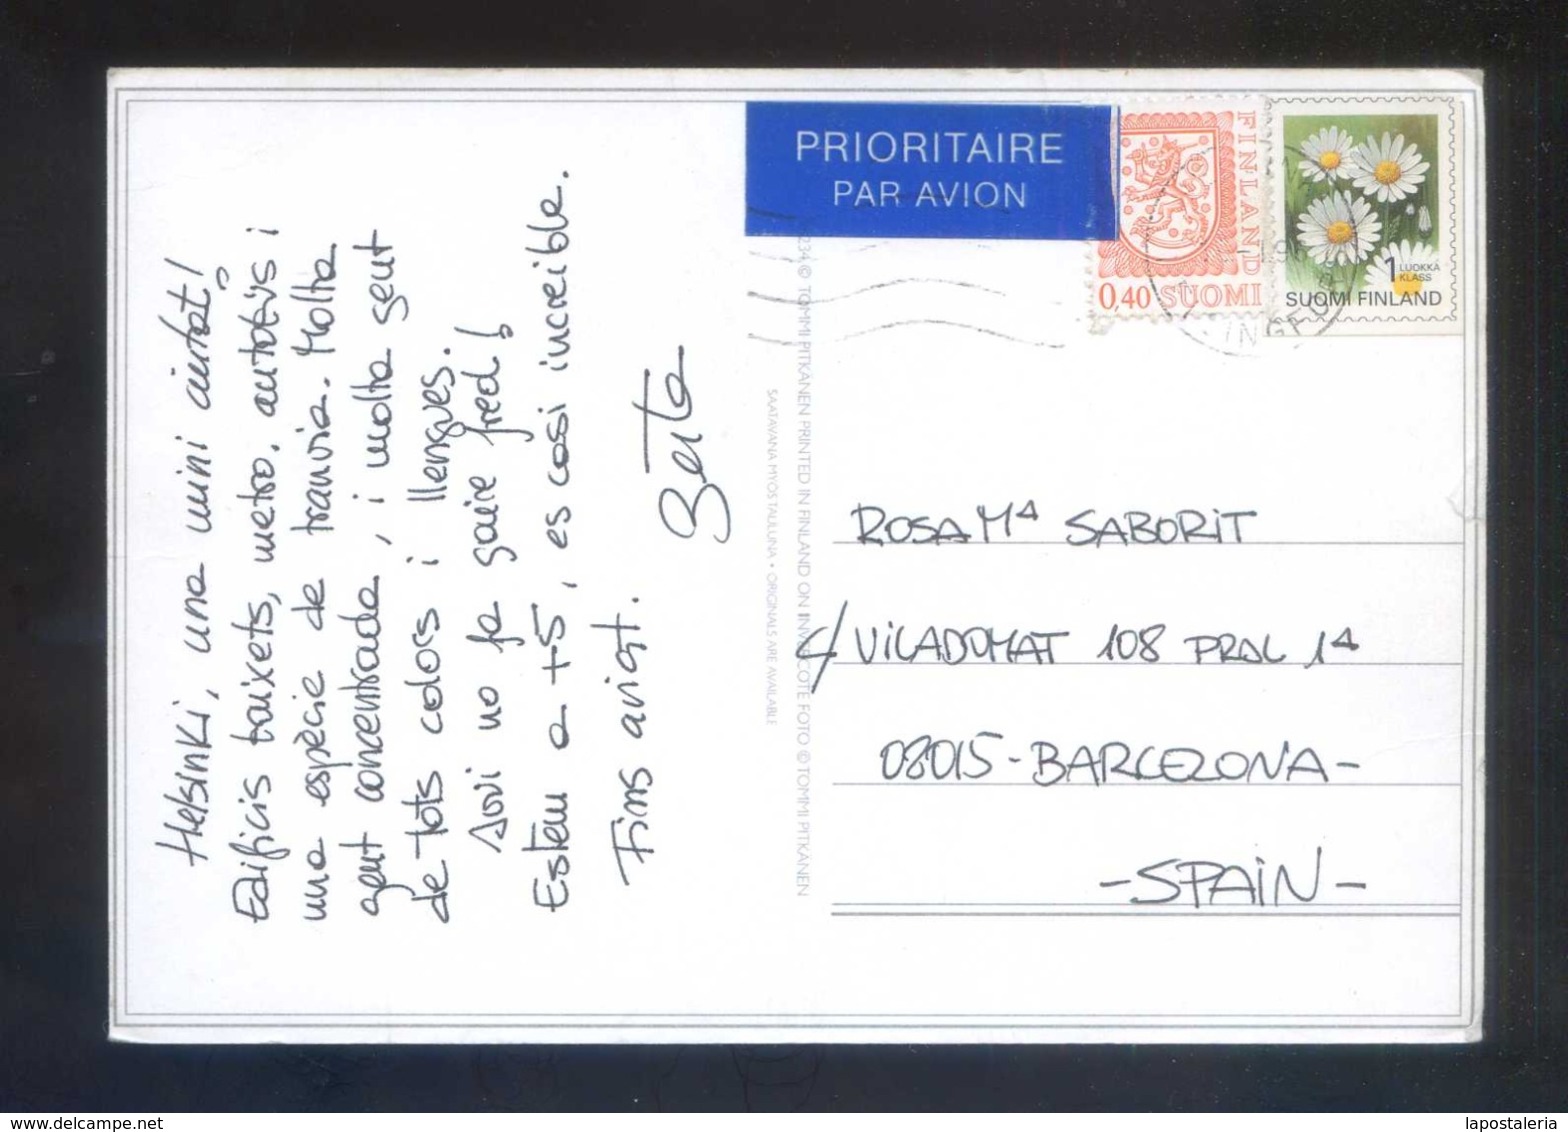 Helsinki, una mini ciutat!
Edificis baixets, metro, autobús i
una espècie de tranvia. Molta
gent concentrada, i molta gent
de tots colors i llengües.
Avui no fa gaire fred!
Estem a +5, es casi increible.
Fins aviat.
Berta
PRIORITAIRE
PAR AVION
FINLAND
0,40 SUOMI
1 LUOKKA
KLASS
SUOMI FINLAND
234 © TOMMI PITKÄNEN PRINTED IN FINLAND ON INVERCOTE FOTO © TOMMI PITKÄNEN
SAATAVANA MYÖS TAULUNA • ORIGINALS ARE AVAILABLE
ROSA Mª SABORIT
C/ VILADOMAT 108 PRAL 1ª
08015 - BARCELONA -
- SPAIN -
delcampe.net
lapostaleria